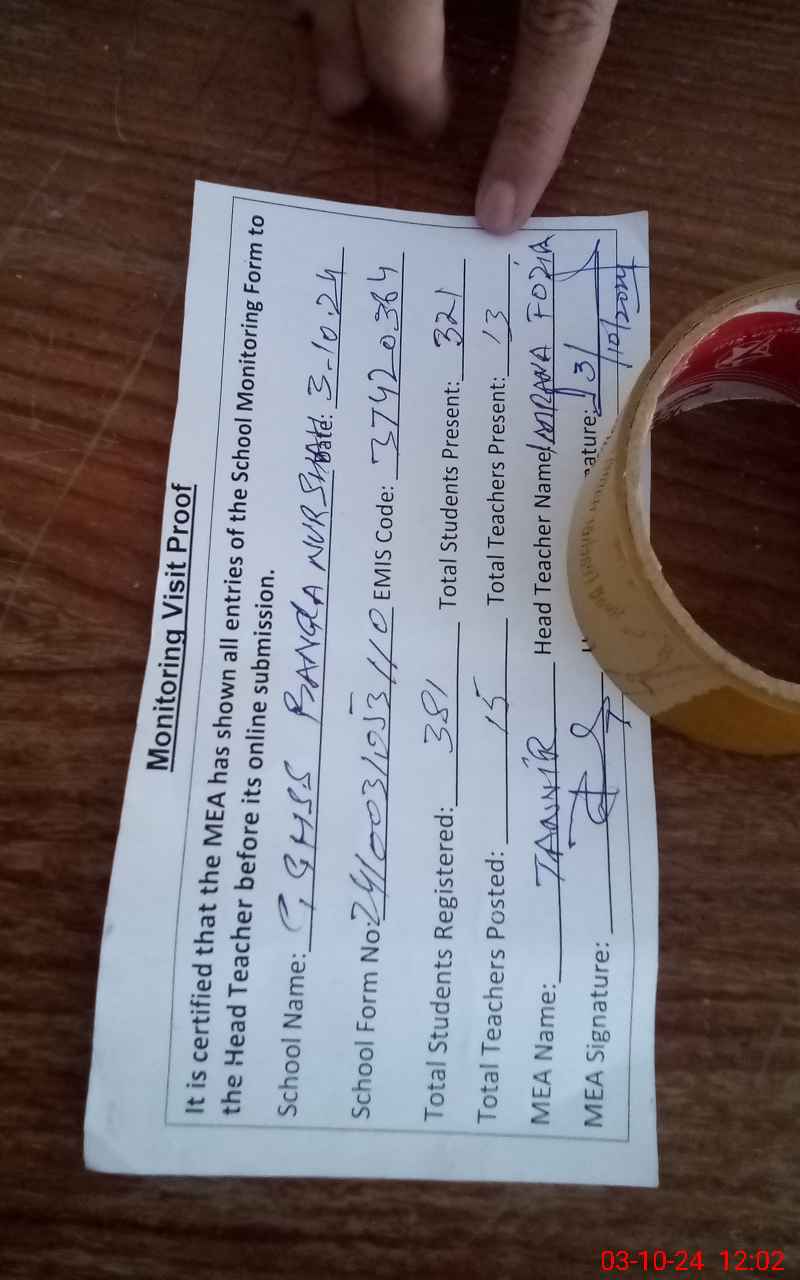 Monitoring Visit Proof
It is certified that the MEA has shown all entries of the School Monitoring Form to
the Head Teacher before its online submission.
School Name: GGHSS BANGLA NUR SHAH Date: 3-10-24
School Form No: 241003105311 0 EMIS Code: 37420364
Total Students Registered: 381 Total Students Present: 321
Total Teachers Posted: 15 Total Teachers Present: 13
MEA Name: TANVIR Head Teacher Name: IMRANA FOZIA
MEA Signature: ature:
3/10/2024
03-10-24 12:02